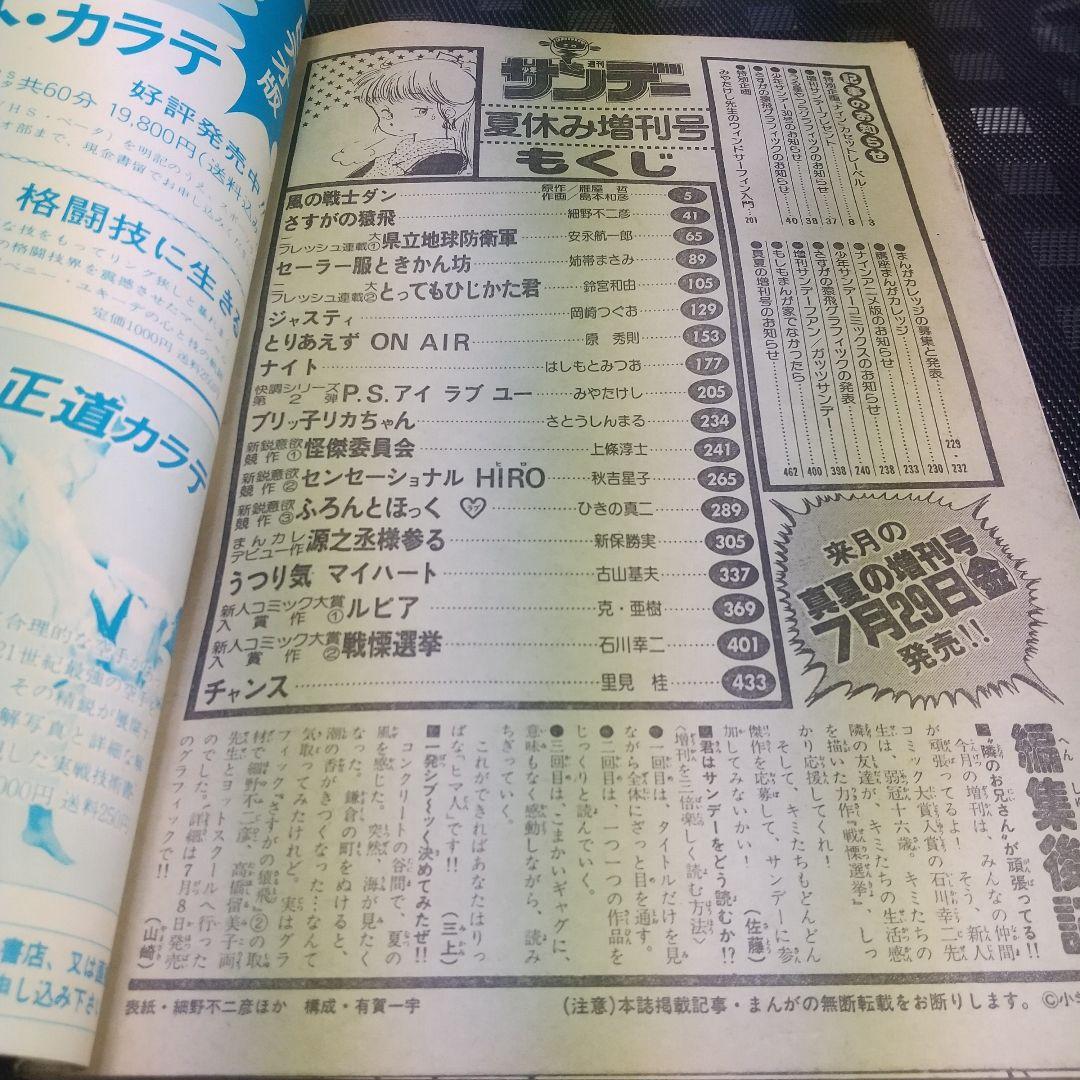 人・カラテ
好評発売中
共60分 19,800円(送料込み)
VHS・ベータ)を明記のうえ、スポ
オ部まで、現金書留でお申し込み下
格闘技に生きる
定価1000円 送料250
正道カラテ
合理的な空手が
21世紀最強の空手
その精鋭が
解写真と詳細な
した実戦技術書
000円 送料250円
書店、又は直
申し込み下さい
週刊
少年
サンデー
夏休み増刊号
もくじ
風の戦士ダン 原作/雁屋 哲 作画/島本和彦 5
さすがの猿飛 細野不二彦 41
二大フレッシュ連載① 県立地球防衛軍 安永航一郎 65
セーラー服ときかん坊 姉帯まさみ 89
二大フレッシュ連載② とってもひじかた君 鈴宮和由 105
ジャスティ 岡崎つぐお 129
とりあえず ON AIR 原 秀則 153
ナイト はしもとみつお 177
快調シリーズ第2弾 P.S.アイ ラブ ユー みやたけし 205
ブリッ子リカちゃん さとうしんまる 234
新鋭意欲競作① 怪傑委員会 上條淳士 241
新鋭意欲競作② センセーショナル HIRO 秋吉星子 265
新鋭意欲競作③ ふろんとほっく ひきの真二 289
まんカレデビュー作 源之丞様参る 新保勝実 305
うつり気 マイハート 古山基夫 337
新人コミック大賞入賞作① ルビア 克・亜樹 369
新人コミック大賞入賞作② 戦慄選挙 石川幸二 401
チャンス 里見 桂 433
記事のお知らせ
特別企画ナインカセットレーベル 3
増刊サンデープレゼント 8
うる星やつらグラフィックのお知らせ 37
少年サンデー30号のお知らせ 38
さすがの猿飛グラフィックのお知らせ 40
特別企画
みやたけし先生のウィンドサーフィン入門 201
まんがカレッジの募集と発表 229・232
講座まんがカレッジ 230
ナインアニメ版のお知らせ 233
少年サンデーコミックスのお知らせ 238
さすがの猿飛グラフィックの発表 240
増刊サンデーファン/ガッツサンデー 398
もしもまんが家でなかったら 400
真夏の増刊号のお知らせ 462
来月の
真夏の増刊号
7月29日(金)
発売!!
編集後記
■隣のお兄さんが頑張ってる!!
今月の増刊は、みんなの仲間
が頑張ってるよ! そう、新人
コミック大賞入賞の石川幸二先
生は、弱冠十六歳。キミたちの
隣の友達が、キミたちの生活感
を描いた力作『戦慄選挙』。し
かり応援してくれ!
そして、キミたちもどんどん
傑作を応募して、サンデーに参
加してみないかい! (佐藤)
■君はサンデーをどう読むか!?
〈増刊を三倍楽しく読む方法〉
●一回目は、タイトルだけを見
ながら全体にざっと目を通す。
●二回目は、一つ一つの作品を
じっくりと読んでいく。
●三回目は、こまかいギャグに、
意味もなく感動しながら、読み
ちぎっていく。
これができればあなたはりっ
ぱな「ヒマ人」です!! (三上)
■一発シブ〜ッく決めてみたぜ!!
コンクリートの谷間で、夏の
風を感じた。突然、海が見たく
なった。鎌倉の町をぬけると、
潮の香がきつくなった…なんて
気取ってみたけれど。実はグラ
フィック『さすがの猿飛』②の取
材で細野不二彦、高橋留美子両
先生とヨットスクールへ行った
のでした。詳細は7月8日発売
のグラフィックで!! (山崎)
表紙・細野不二彦ほか 構成・有賀一宇
(注意)本誌掲載記事・まんがの無断転載をお断りします。©小学